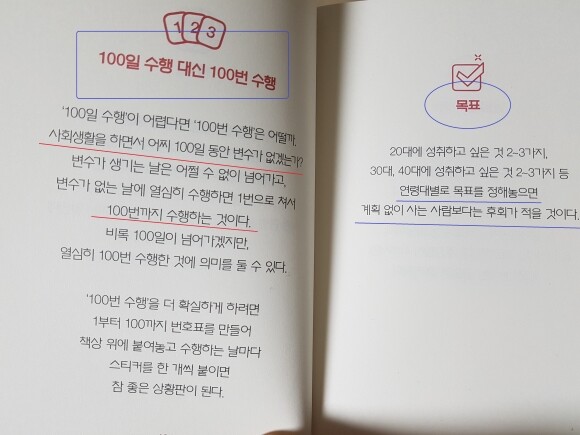 1 2 3
100일 수행 대신 100번 수행
'100일 수행'이 어렵다면 '100번 수행'은 어떨까.
사회생활을 하면서 어찌 100일 동안 변수가 없겠는가?
변수가 생기는 날은 어쩔 수 없이 넘어가고,
변수가 없는 날에 열심히 수행하면 1번으로 쳐서
100번까지 수행하는 것이다.
비록 100일이 넘어가겠지만,
열심히 100번 수행한 것에 의미를 둘 수 있다.
'100번 수행'을 더 확실하게 하려면
1부터 100까지 번호표를 만들어
책상 위에 붙여놓고 수행하는 날마다
스티커를 한 개씩 붙이면
참 좋은 상황판이 된다.
목표
20대에 성취하고 싶은 것 2~3가지,
30대, 40대에 성취하고 싶은 것 2~3가지 등
연령대별로 목표를 정해놓으면
계획 없이 사는 사람보다는 후회가 적을 것이다.